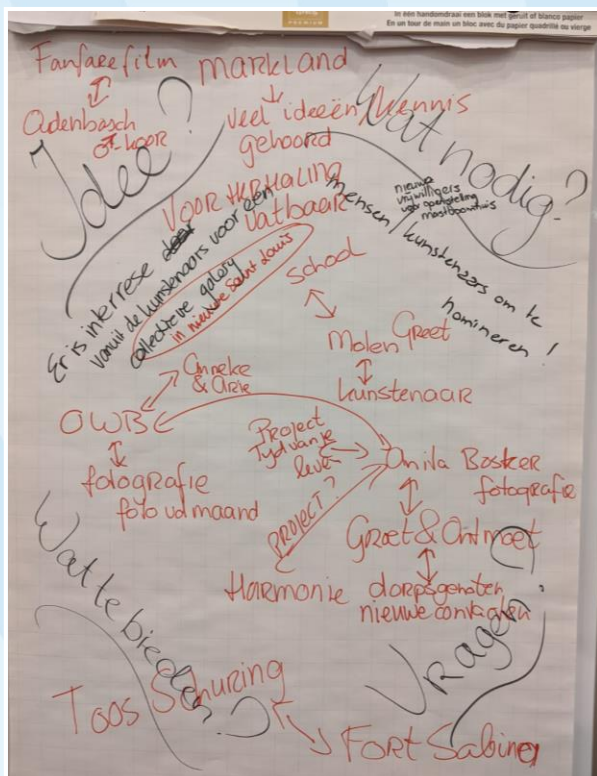 PREMIUM
In één handomdraai een blok met geruit of blanco papier
En un tour de main un bloc avec du papier quadrillé ou vierge
Fanfarefilm
Odenbosch
OF KOOR
MARKLAND
veel ideeën/kennis
gehoord
VOOR HERHALING
vatbaar
Idee?
Wat nodig?
nieuwe
vrijwilligers
voor openstelling
mastboomhuis
mensen/kunstenaars om te
nomineren!
Er is interrese
vanuit de kunstenaars voor een
collectieve galery
in nieuwe Saint Louis
School
Molen Greet
kunstenaar
Anneke
& Arie
OWB
fotografie
foto vd maand
Project
Tijd van je
leven
Bosker
fotografie
PROJECT?
Groet & Ontmoet
HARMONIE
dorpsgenoten
nieuwe contacten
Wat te bieden?
Vragen?
Toos Schuring
FORT Sabina